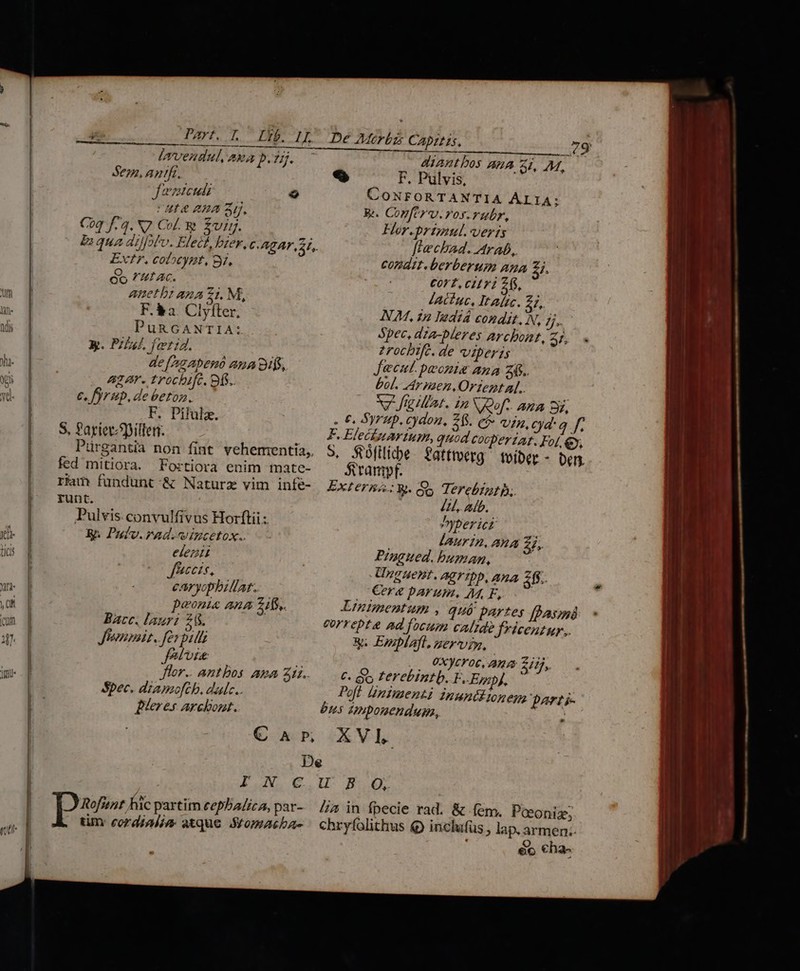 Part. I. Lib. II. De Morbis Capitis. 79
lavendul, ana p. iij.
Sem. anisi,
fœniculi
rutæ ana ʒij.
Coq f. q. ▽ Col. ℞ ℥viij.
In qua dissolv. Elect, hier, c. agar. ℥i,
Extr. colocynt, ℈i,
&o rutac.
anethi ana ℥i. M,
F. &a Clyster,
PURGANTIA:
℞. Pilul. fœtid.
de sagapenô ana ℈iß,
agar. trochisc. ℈ß.
c. syrup, de beton.
F. Pilulæ.
S. Laxier-Pillen.
Purgantia non sint vehementia,
sed mitiora. Fortiora enim mate-
riam fundunt & Naturæ vim infe-
runt.
Pulvis convulsivus Horstii:
℞. Pulv. rad. vincetox.
elenii
succis,
caryophillat.
pæoniæ ana ℥iß,
Bacc. lauri ℥ß.
summit. serpilli
salviæ
flor. anthos ana ℥ii.
Spec. diamosch. dulc.
pleres archont.
dianthos ana ℥i, M,
F. Pulvis,
CONFORTANTIA ALIA:
℞. Conserv. ros. rubr,
Flor. primul. veris
stœchad. Arab,
condit. berberum ana ℥i.
cort, citri ℥ß,
lactuc, Italic. ℥i,
NM, in Indiâ condit. N, ij.
Spec, dia-pleres archont, ℥i,
trochisc. de viperis
fæcul. pæoniæ ana ℥ß.
bol. Armen. Oriental.
▽ sigillat. in ▽Ros. ana ℈i,
c, Syrup. cydon, ℥ß. & vin, cyd. q f.
F. Electuarium, quod cooperiat. Fol, ☉.
S, Köstliche Lattwerg wider den
Krampf.
Externa: ℞. &o Terebinth.
lil, alb.
hyperici
laurin, ana ℥i,
Pingued. human,
Unguent. agripp, ana ℥ß.
Ceræ parum, M, F,
Linimentum, quô partes spasmô
correptæ ad focum calidè fricentur.
℞. Emplast. nervin,
oxycroc, ana ℥iij,
c. &o terebinth. F. Empl.
Post linimenti inunctionem parti-
bus imponendum,
CAP. XVI.
De
INCUBO,
PRosunt hîc partim cephalica, par-
tim cordialia atque Stomacha-
lia in specie rad. & sem. Pæoniæ,
chrysolithus ☉ inclusus, lap. armen.
&o cha-